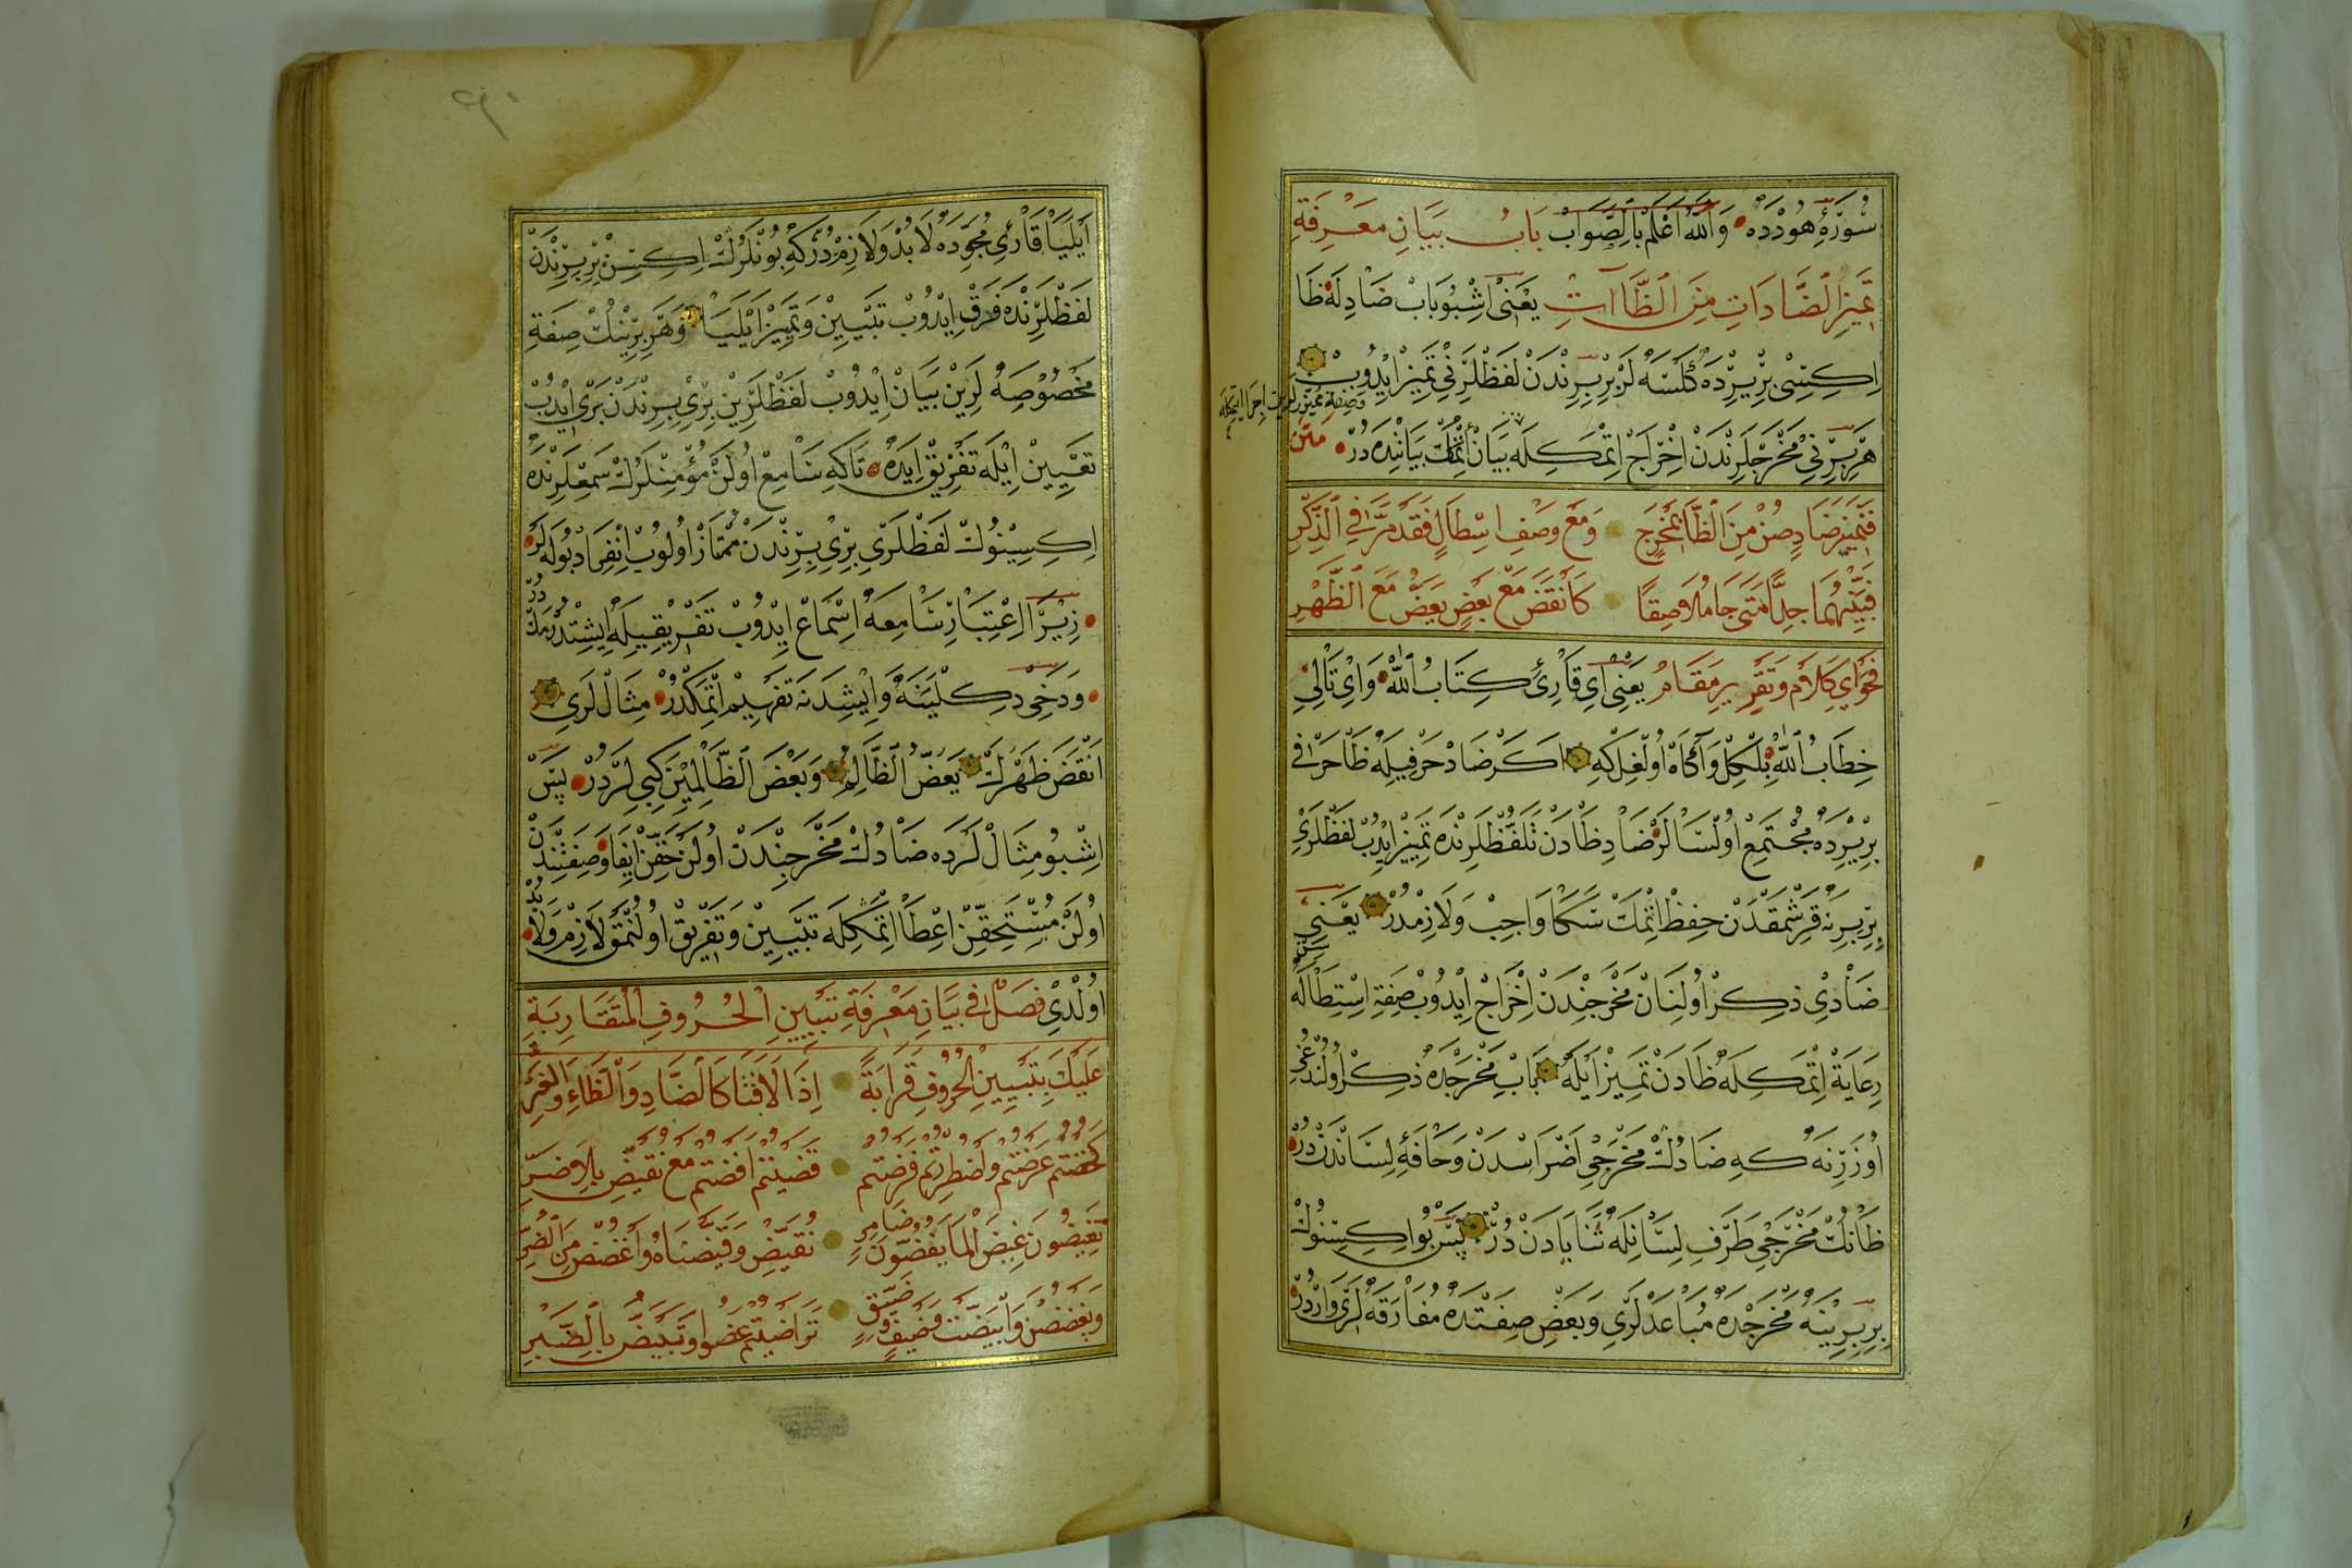 سُورَۀِ هُودْدَه وَاللّٰهُ اَعْلَمُ بِالصَّوَابْ بَابُ بَيَانِ مَعْرِفَةِ
تَمِيزِ الضَّادَاتِ مِنَ الظَّاآتِ يَعْنٖى اِشْبُو بَابْ ضَادِلَه ظَا
اِكِيسٖى بِرْيِرْدَه كَلْسَه لَرْ بِرْبِرِنْدَنْ لَفْظْلَرِنٖى تَمِيزْ اِيدُوبْ
هَرْ بِرِنٖى مَخْرَجْلَرِنْدَنْ اِخْرَاجْ اِتْمَكِلَه بَيَانْ اِتْمَكْ بَيَانِنْدَه دُرْ مَتَنْ
فَتَمْيِيزَ ضَادٍ صُنْ مِنَ الظَّا بِمَخْرَجٍ وَمَعْ وَصْفِ اسْتِطَالٍ فَقَدْ مَرَّ فِي الذِّكْرِ
فَبَيِّنْهُمَا جِدًّا مَتَى جَا مُلَاصِقًا كَاَنْقَضَ مَعْ بَعْضٍ يَعَضُّ مَعَ الظَّهْرِ
فَحْوَاىِ كَلَامْ وَتَقْرِيرِ مَقَامْ يَعْنٖى اَىْ قَارِئِ كِتَابُ اللّٰه وَاَىْ تَالِىِ
خِطَابُ اللّٰه بِلْكِلْ وَآگَاهْ اُولْغِلْ كِه اَكَرْ ضَادْ حَرْفِيلَه ظَا حَرْفٖى
بِرْيِرْدَه مُجْتَمِعْ اُولْسَالَرْ ضَادِ ظَادَنْ تَلَفُّظْلَرِنْدَه تَمْيِيزْ اِيدُبْ لَفْظْلَرِى
بِرْبِرِنَه قَرِشْمَقْدَنْ حِفْظْ اِتْمَكْ سَكَا وَاجِبْ وَلَازِمْدُرْ يَعْنٖى سَنْ
ضَادِى ذِكْرْ اُولِنَانْ مَخْرَجِنْدَنْ اِخْرَاجْ اِيدُوبْ صِفَةِ اِسْتِطَالَه
رِعَايَةْ اِتْمَكِلَه ظَادَنْ تَمِيزْ اَيْلَه بَابِ مَخْرَجْدَه ذِكْرْ اُولُنْدُغِى
اُوزَرِنَه كِه ضَادُكْ مَخْرَجِى اَضْرَاسْدَنْ وَحَافَةِ لِسَانْدَنْ دُرْ
ظَانِكْ مَخْرَجِى طَرَفِ لِسَانِلَه ثَنَايَادَنْ دُرْ پَسْ بُو اِكِيسِنُوكْ
بِرْبِرِينَه مَخْرَجْدَه مُبَاعَدْلَرِى وَبَعْضِ صِفَتْدَه مُفَارَقَه لَرِى وَارْدُرْ
اَيْلَيَا قَارِئِ مُجَوِّدَه لَابُدْ وَلَازِمْدُرْكِه بُونْلَرُكْ اِكِيسِنْ بِرْبِرِنْدَنْ
لَفْظْلَرِنْدَه فَرْقْ اِيدُوبْ تَبْيِينْ وَتَمْيِيزْ اَيْلَيَا وَهَرْ بِرِينِكْ صِفَةِ
مَخْصُوصَه لَرِينْ بَيَانْ اِيدُوبْ لَفْظْلَرِينْ بِرِى بِرِنْدَنْ بَرِى اِيدُبْ
تَعْيِينْ اِيْلَه تَفْرِيقْ اِيدَه تَاكِه سَامِعْ اُولَنْ مُؤْمِنْلَرُكْ سَمْعْلَرِنْدَه
اِكِيسِينُوكْ لَفْظْلَرِى بِرِى بِرِنْدَنْ مُمْتَازْ اُولُوبْ اِنْفِرَادْ بُولَه لَرْ
زِيرَا اِعْتِبَارْ سَامِعَه اِسْمَاعْ اِيدُوبْ تَفْرِيقِيلَه اِيشِتْدُرْمَكْدُرْ
وَدَخِى دِكْلَيَنَه وَاِيْشِدَنَه تَفْهِيمْ اِتْمَكْدُرْ مِثَالْ لَرِى
اَنْقَضَ ظَهْرَكَ يَعَضُّ الظَّالِمُ وَبَعْضَ الظَّالِمِينَ كِبِى لَرْدُرْ پَسْ
اِشْبُو مِثَالْ لَرْدَه ضَادُكْ مَخْرَجِنْدَنْ اُولَنْ حَقِّنْ اِيفَا وَصِفَتِنْدَنْ
اُولَنْ مُسْتَحِقِّنْ اِعْطَا اِتْمَكِلَه تَبْيِينْ وَتَفْرِيقْ اُولُنْمَقْ لَازِمْ وَلَابُدْ
اُولْدِى فَصْلٌ فِى بَيَانِ مَعْرِفَةِ تَبْيِينِ الْحُرُوفِ الْمُتَقَارِبَةِ
عَلَيْكَ بِتَبْيِينِ الْحُرُوفِ قَرَابَةً اِذَا لَاقَتَا كَالضَّادِ وَالظَّاءِ وَالْغَيْرِ
كَخُضْتُمْ عَرَضْتُمْ وَاضْطُرِرْتُمْ فَرَضْتُمْ قَضَيْتُمْ اَفَضْتُمْ مَعْ نُقَيِّضْ
تُفِيضُونَ غِيضَ الْمَا نُقَيِّضْ وَقَيَّضْنَاهُ وَاغْضُضْ مِنَ
وَيَغْضُضْنَ وَابْيَضَّتْ وَضَيْفٍ تَرَاضَيْتُمُ عَضُّوا وَتَبْيَضُّ